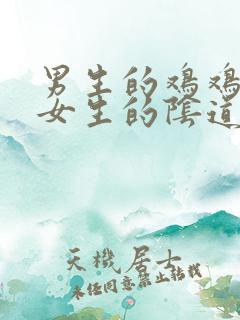 男生的鸡鸡
女生的陰道
天機居士
未经同意禁止转载